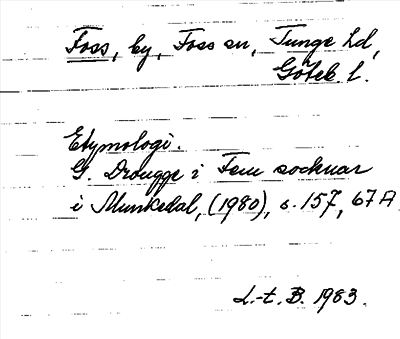 Foss, by, Foss sn, Tunge hd,
Göteb. l.
Etymologi.
G. Drougge i Fem socknar
i Munkedal, (1980), s. 157, 67 A
L.-t. B. 1983.